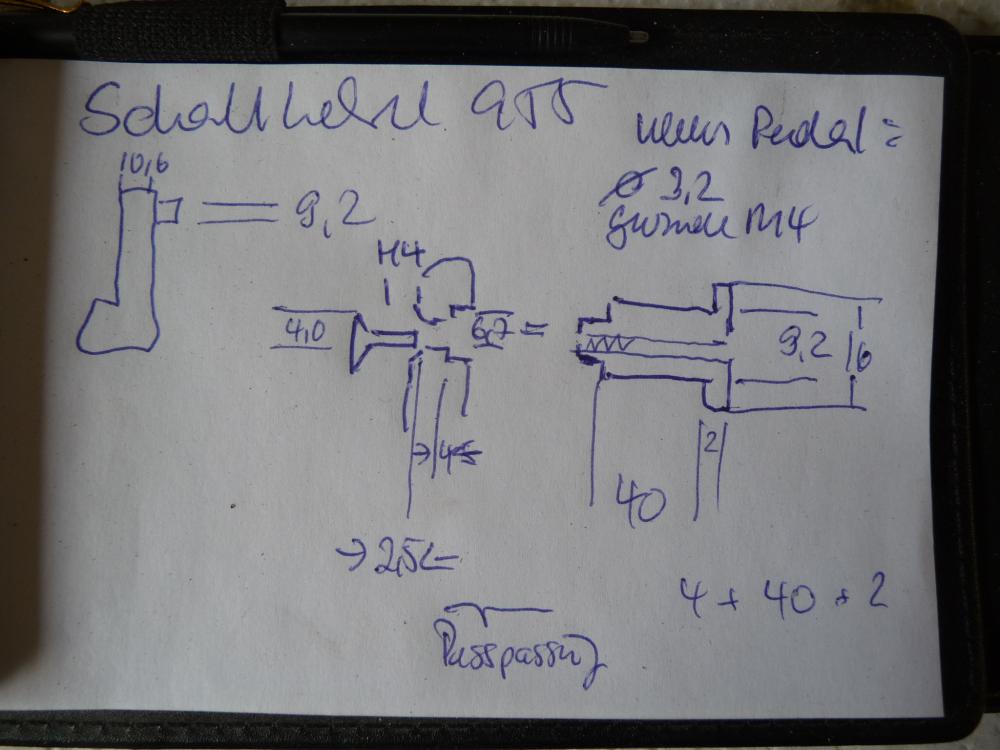 Schalthebel 955
neues Pedal =
10,6
9,2
Ø 9,2
Gewinde M4
M4
4,0
6,7 =
9,2
16
→ 4,5
2
40
→ 2,5 ←
4 + 40 + 2
Presspassung